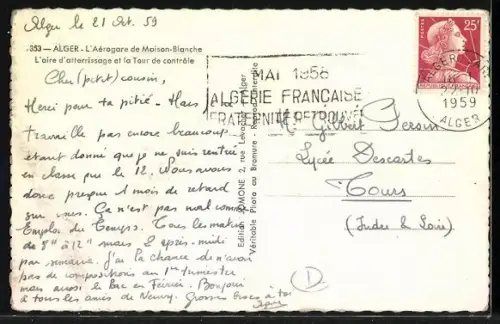 Alger le 21 Oct. 59
353 — ALGER - L'Aérogare de Maison-Blanche
L'aire d'atterrissage et la Tour de contrôle
Cher (petit) cousin,
Merci pour ta pitié - Mais je ne
travaille pas encore beaucoup
étant donné que je ne suis rentrée
en classe que le 12. Nous avons
donc presque 1 mois de retard
sur
Ça n'est pas mal comme
Emploi du Temps. Tous les matins
de 8h à 12h mais 2 après-midi
par semaine. J'ai la chance de n'avoir
pas de compositions au 1er trimestre
mais aussi le Bac en Février. Bonjour
à tous les amis de Neuvy. Grosses bises à toi
Edition JOMONE 2, rue Alger
Véritable Photo au Bromure - Reproduction interdite
MAI 1958
ALGERIE FRANÇAISE
FRATERNITÉ RETROUVÉE
POSTES
25F
1959
ALGER
M. Gilbert
Lycée Descartes
Tours
(Indre & Loire)
D